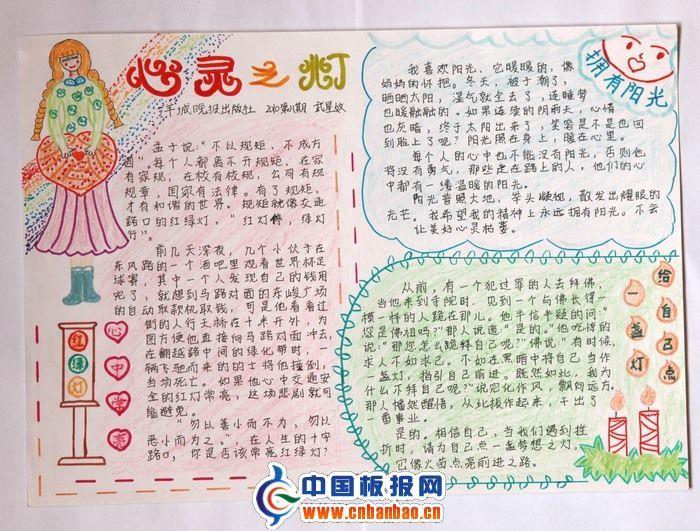 心灵之灯
羊城晚报出版社 2010第1期 武星姣
孟子说:“不以规矩，不成方
圆”。每个人都离不开规矩，在家
有家规，在校有校规，公司有规
规章，国家有法律。有了规矩，
才有和谐的世界。规矩就像交通
路口的红绿灯，“红灯停，绿灯
行”。
前几天深夜，几个小伙子在
东风路的一个酒吧里观看世界杯足
球赛，其中一个人发现自己的钱用
呢了，就想到马路对面的东峻广场
的自动取款机取钱，可是他看看过
街的人行天桥在十米开外，为
图方便他直接向马路对面冲去，
在翻越路中间的绿化带时，一
辆飞驰而来的的士将他撞倒，
当场死亡。如果他心中交通安
全的红灯常亮，这场悲剧就可
能避免。
“勿以善小而不为，勿以
恶小而为之。”在人生的十字
路口，你是否该常亮红绿灯?
红
绿
灯
心
中
常
亮
拥有阳光
我喜欢阳光，它暖暖的，像
妈妈的怀抱。冬天，被子潮了，
晒晒太阳，湿气就全去了，连睡梦
也暖融融的。如果连续的阴雨天，心情
也灰暗，终于太阳出来了，笑容是不是也回
到脸上了呢?阳光照在身上，暖在心里。
每个人的心中也不能没有阳光，否则他
将没有勇气，那些走在路上的人，他们的心
中都有一缕温暖的阳光。
阳光普照大地，举头凝视，散发出耀眼的
光芒。我希望我的精神上永远拥有阳光。不会
让美好心灵枯萎。
给自己点
一盏灯
从前，有一个犯过罪的人去拜佛，
当他来到寺院时，见到一个与佛长得一
模一样的人跪在那儿。他半信半疑的问:“
您是佛祖吗?”那人说道“是的。”他吃惊的
说:“那您怎么跪拜自己呢?”佛说:“有时候，
求人不如求己，不如在黑暗中将自己当作
一盏灯，指引自己前进。既然如此，我为
什么不拜自己呢?”说完化作风，飘向远方。
那人幡然醒悟，从此振作起来，干出了
一番事业。
是的。相信自己，当我们遇到挫
折时，请为自己点一盏梦想之灯，
它像火苗点亮前进之路。
中国板报网
www.cnbanbao.cn